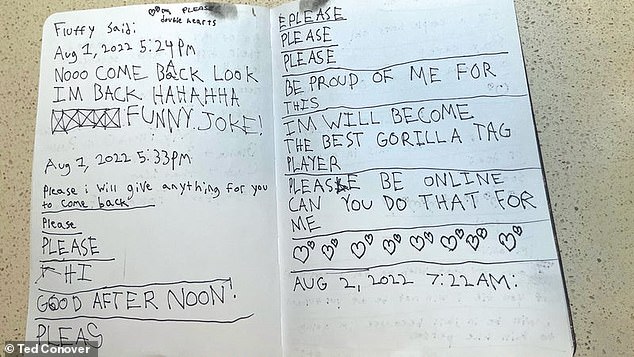 PLEASE
double hearts
Fluffy Said:
Aug 1, 2022 5:24pm
NOOO COME BACK LOOK
IM BACK HAHAHHA
FUNNY JOKE!
Aug 1, 2022 5:33pm
please i will give anything for you
to come back
Please
PLEASE
HI
GOOD AFTER NOON!
PLEAS
E PLEASE
PLEASE
PLEASE
BE PROUD OF ME FOR
THIS
IM WILL BECOME
THE BEST GORILLA TAG
PLAYER
PLEASE BE ONLINE
CAN YOU DO THAT FOR
ME
AUG 2, 2022 7:22AM:
© Ted Conover